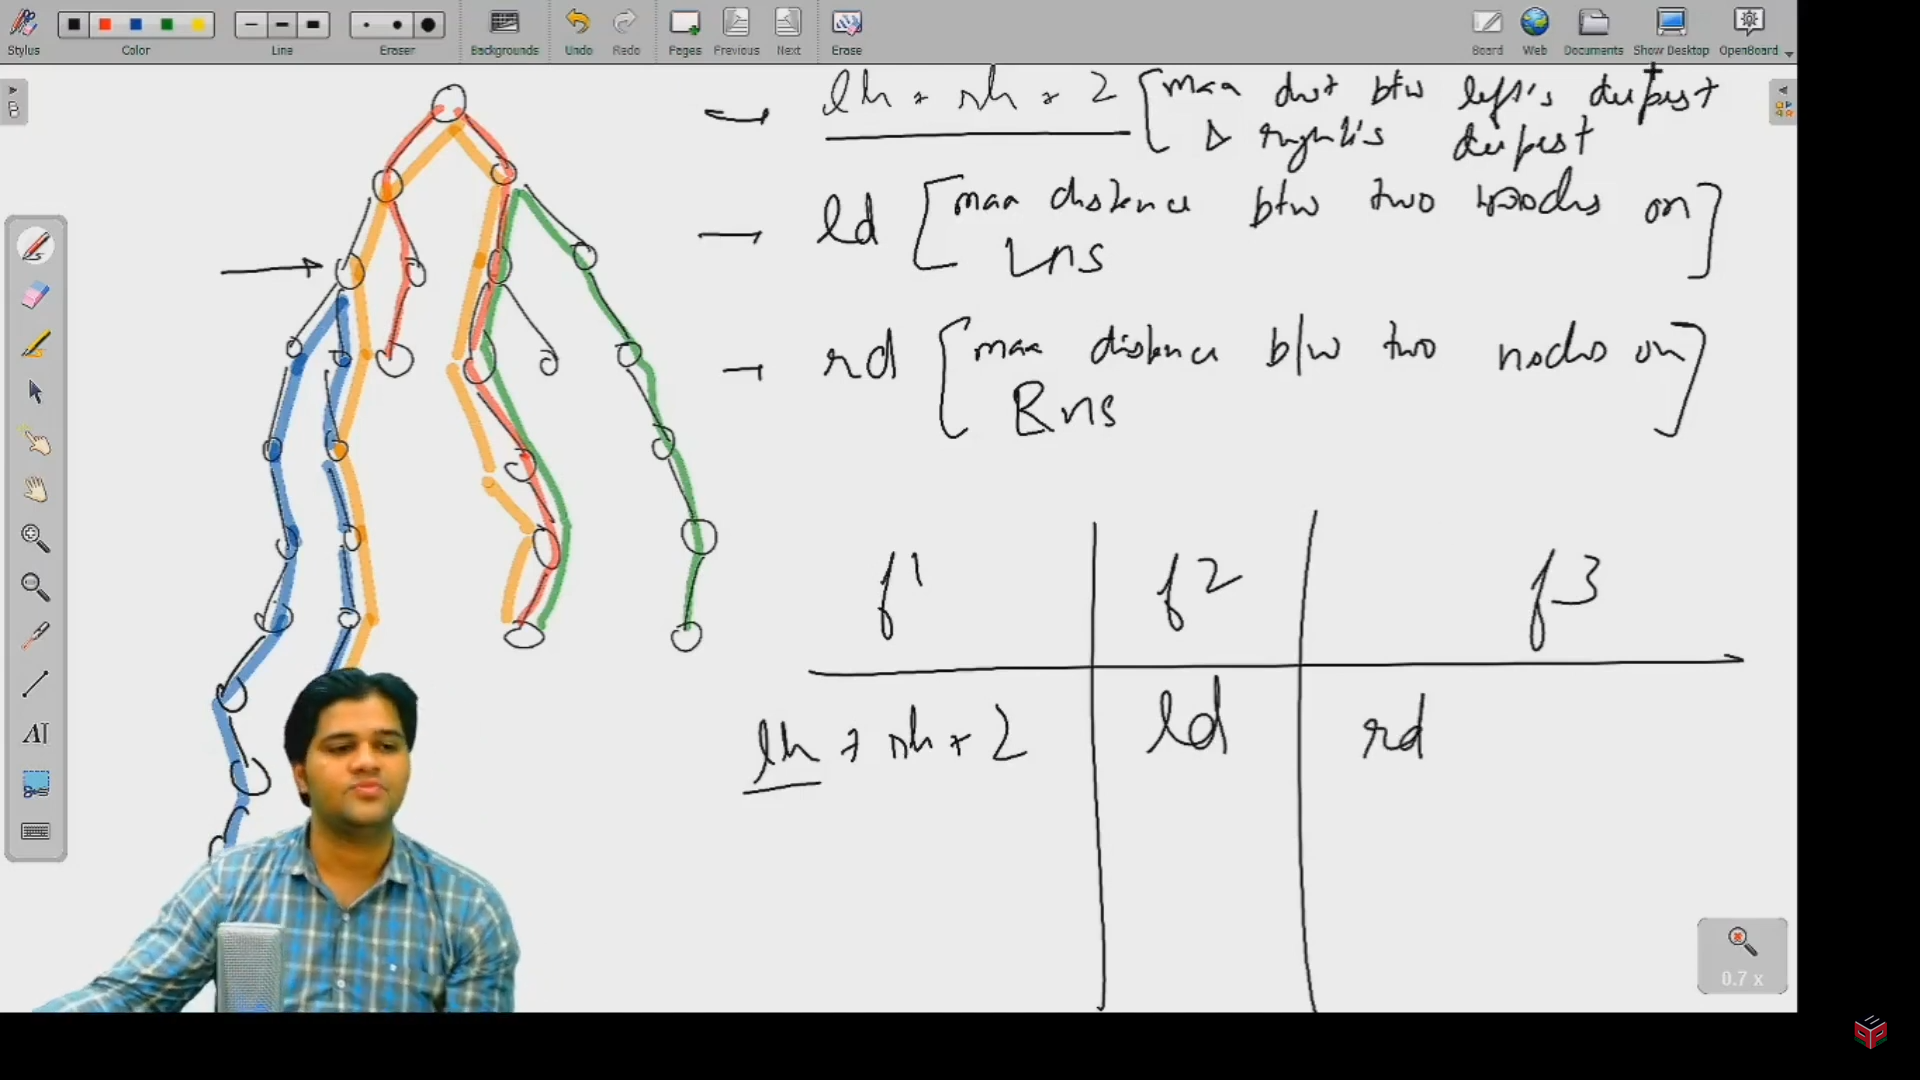 Stylus Color Line Eraser Backgrounds Undo Redo Pages Previous Next Erase Board Web Documents Show Desktop OpenBoard
B
lh + rh + 2 [max dist btw left's deepest
& right's deepest
ld [max distance btw two nodes on]
Lhs
rd [max distance b/w two nodes on]
Rhs
f1 f2 f3
lh + rh + 2 ld rd
AI
0.7 x